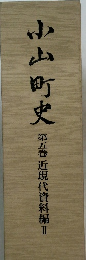 小山町史
第五巻 近現代資料編Ⅱ